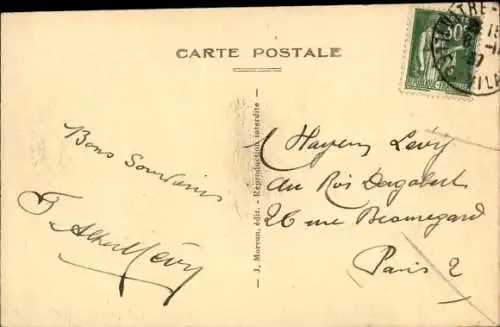 CARTE POSTALE
Bons Souvenirs
Albert Lévy
J. Moreau, édit. - Reproduction interdite
Hayem Lévy
au Roi Dagobert
26 rue Beauregard
Paris 2
50